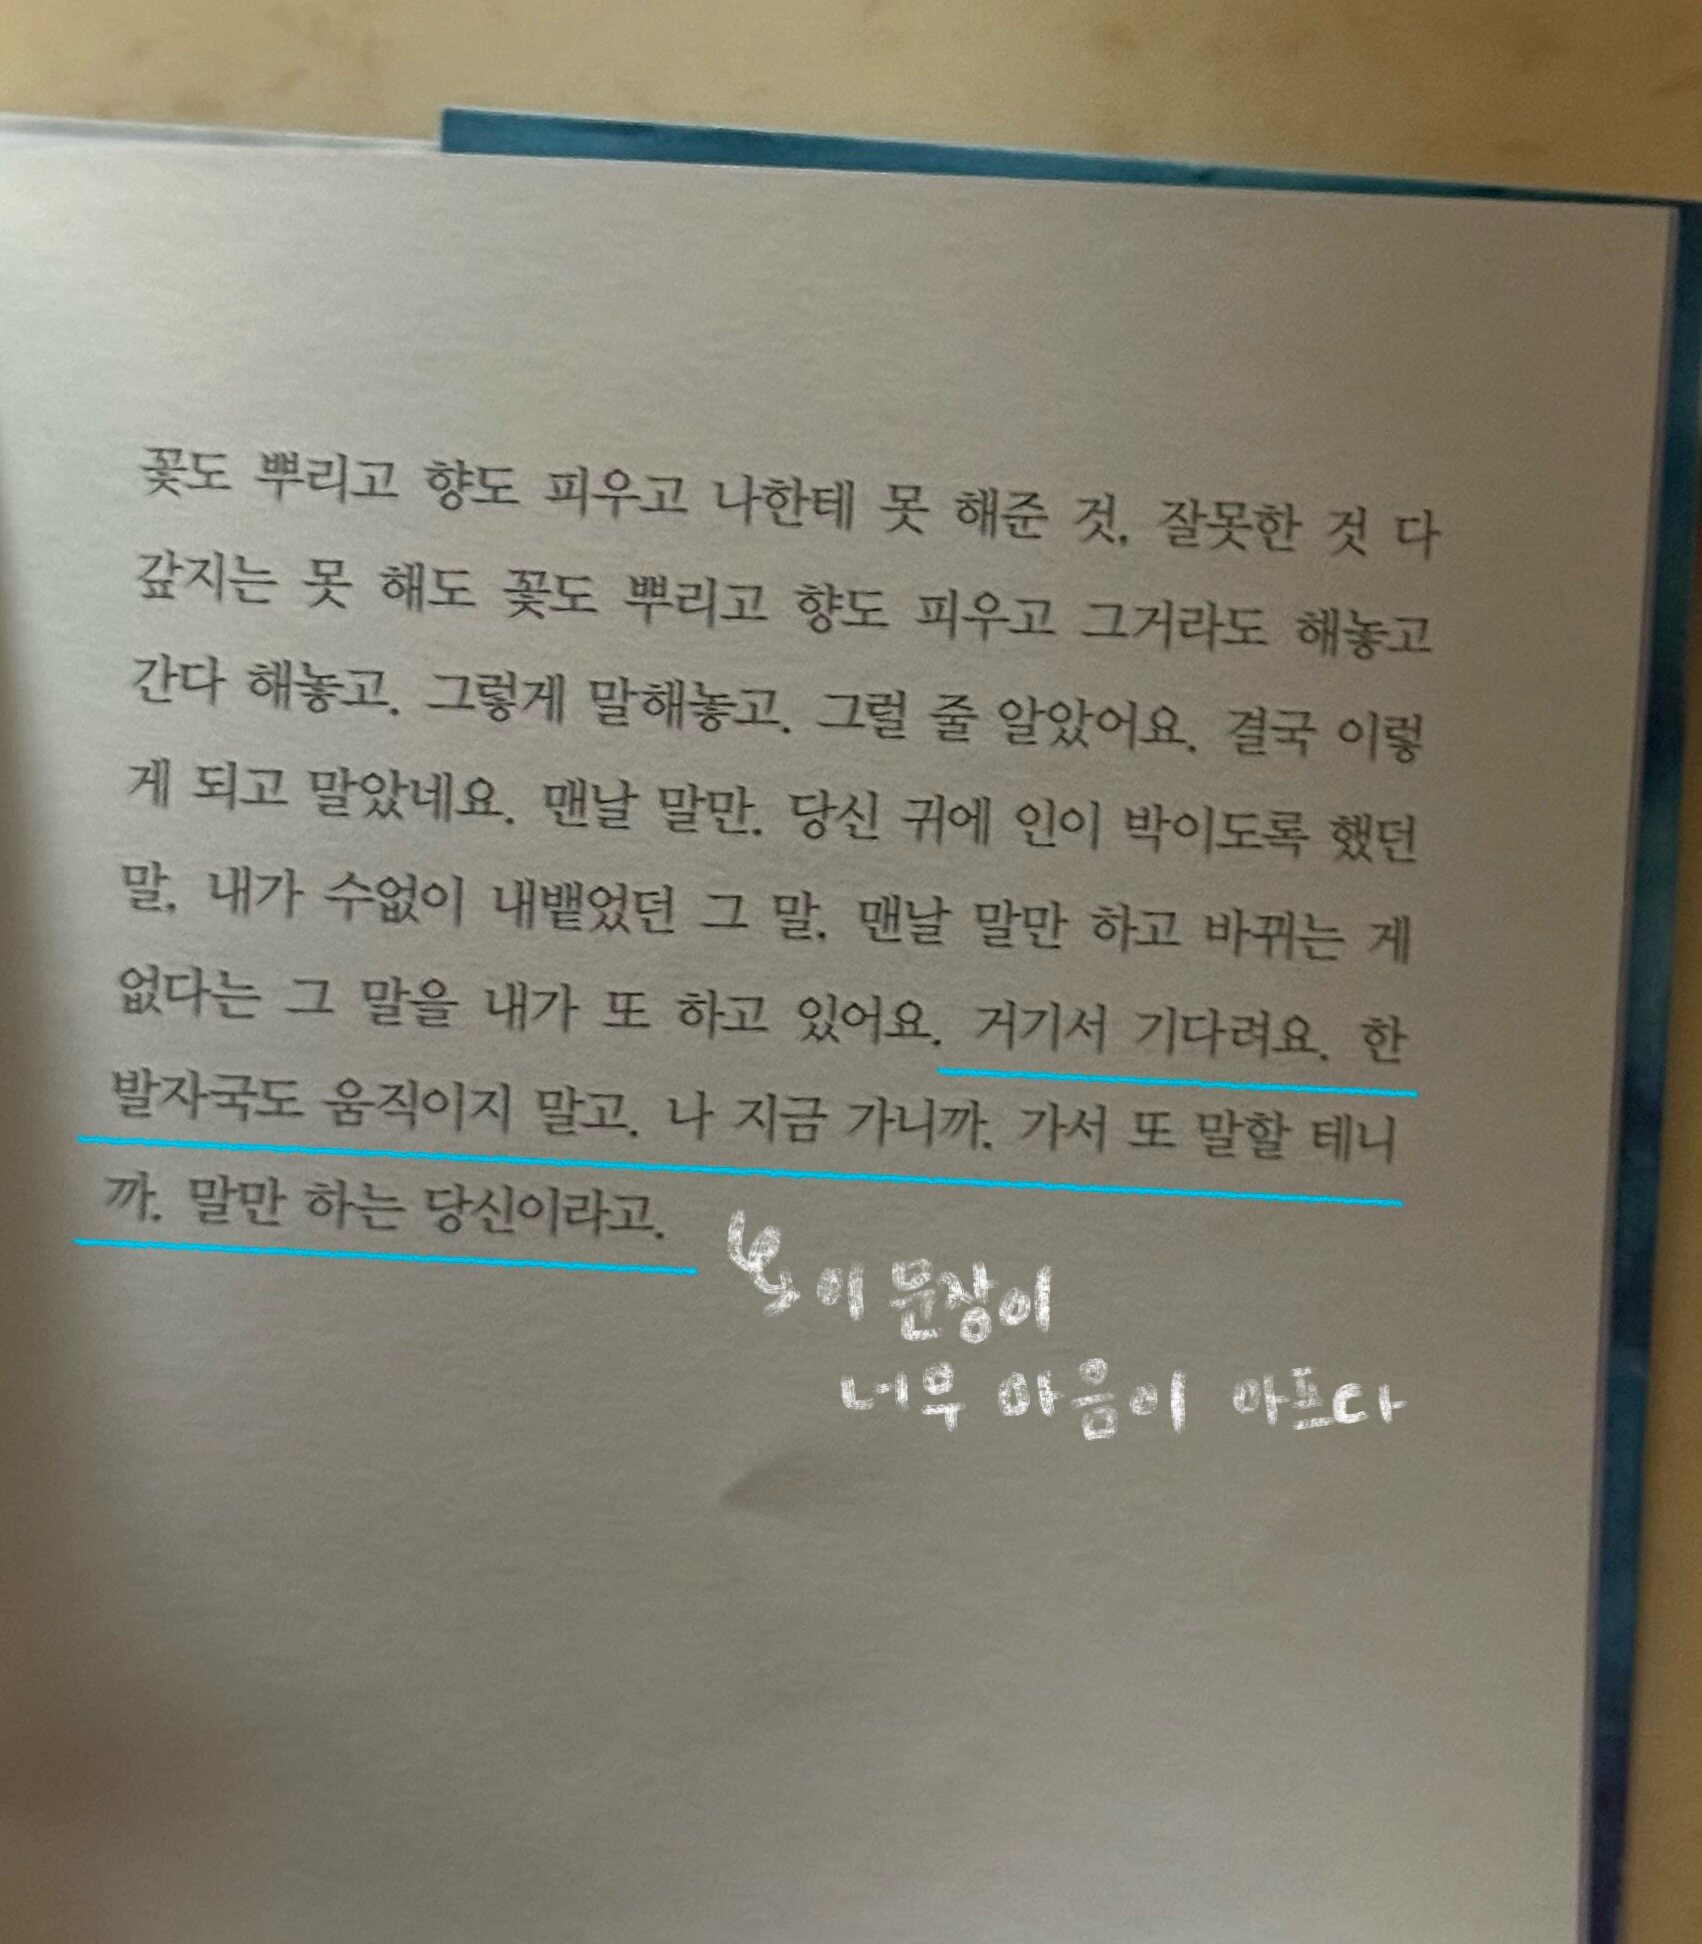 꽃도 뿌리고 향도 피우고 나한테 못 해준 것. 잘못한 것 다
갚지는 못 해도 꽃도 뿌리고 향도 피우고 그거라도 해놓고
간다 해놓고. 그렇게 말해놓고. 그럴 줄 알았어요. 결국 이렇
게 되고 말았네요. 맨날 말만. 당신 귀에 인이 박이도록 했던
말. 내가 수없이 내뱉었던 그 말. 맨날 말만 하고 바뀌는 게
없다는 그 말을 내가 또 하고 있어요. 거기서 기다려요. 한
발자국도 움직이지 말고. 나 지금 가니까. 가서 또 말할 테니
까. 말만 하는 당신이라고.
이 문장이
너무 마음이 아프다